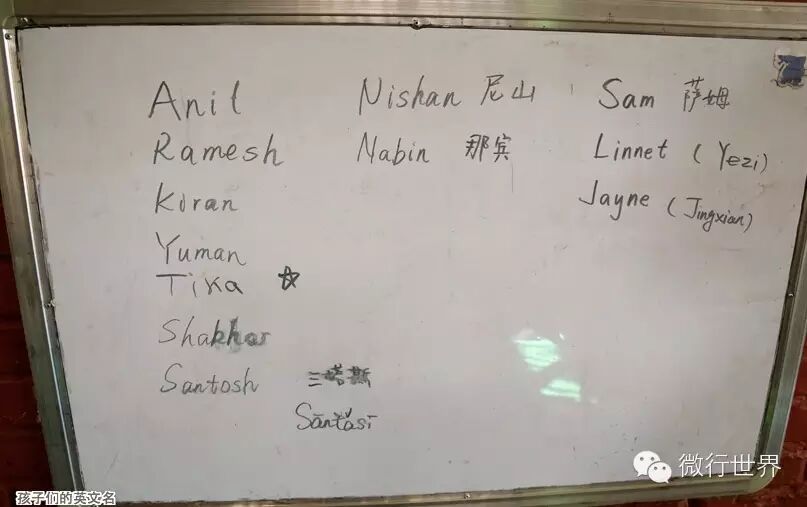 Anil
Ramesh
Kiran
Yuman
Tika ☆
Shakhar
Santosh 三塔斯
Sāntǎsī
Nishan 尼山
Nabin 那宾
Sam 萨姆
Linnet (Yezi)
Jayne (Jingxian)
孩子们的英文名
微行世界